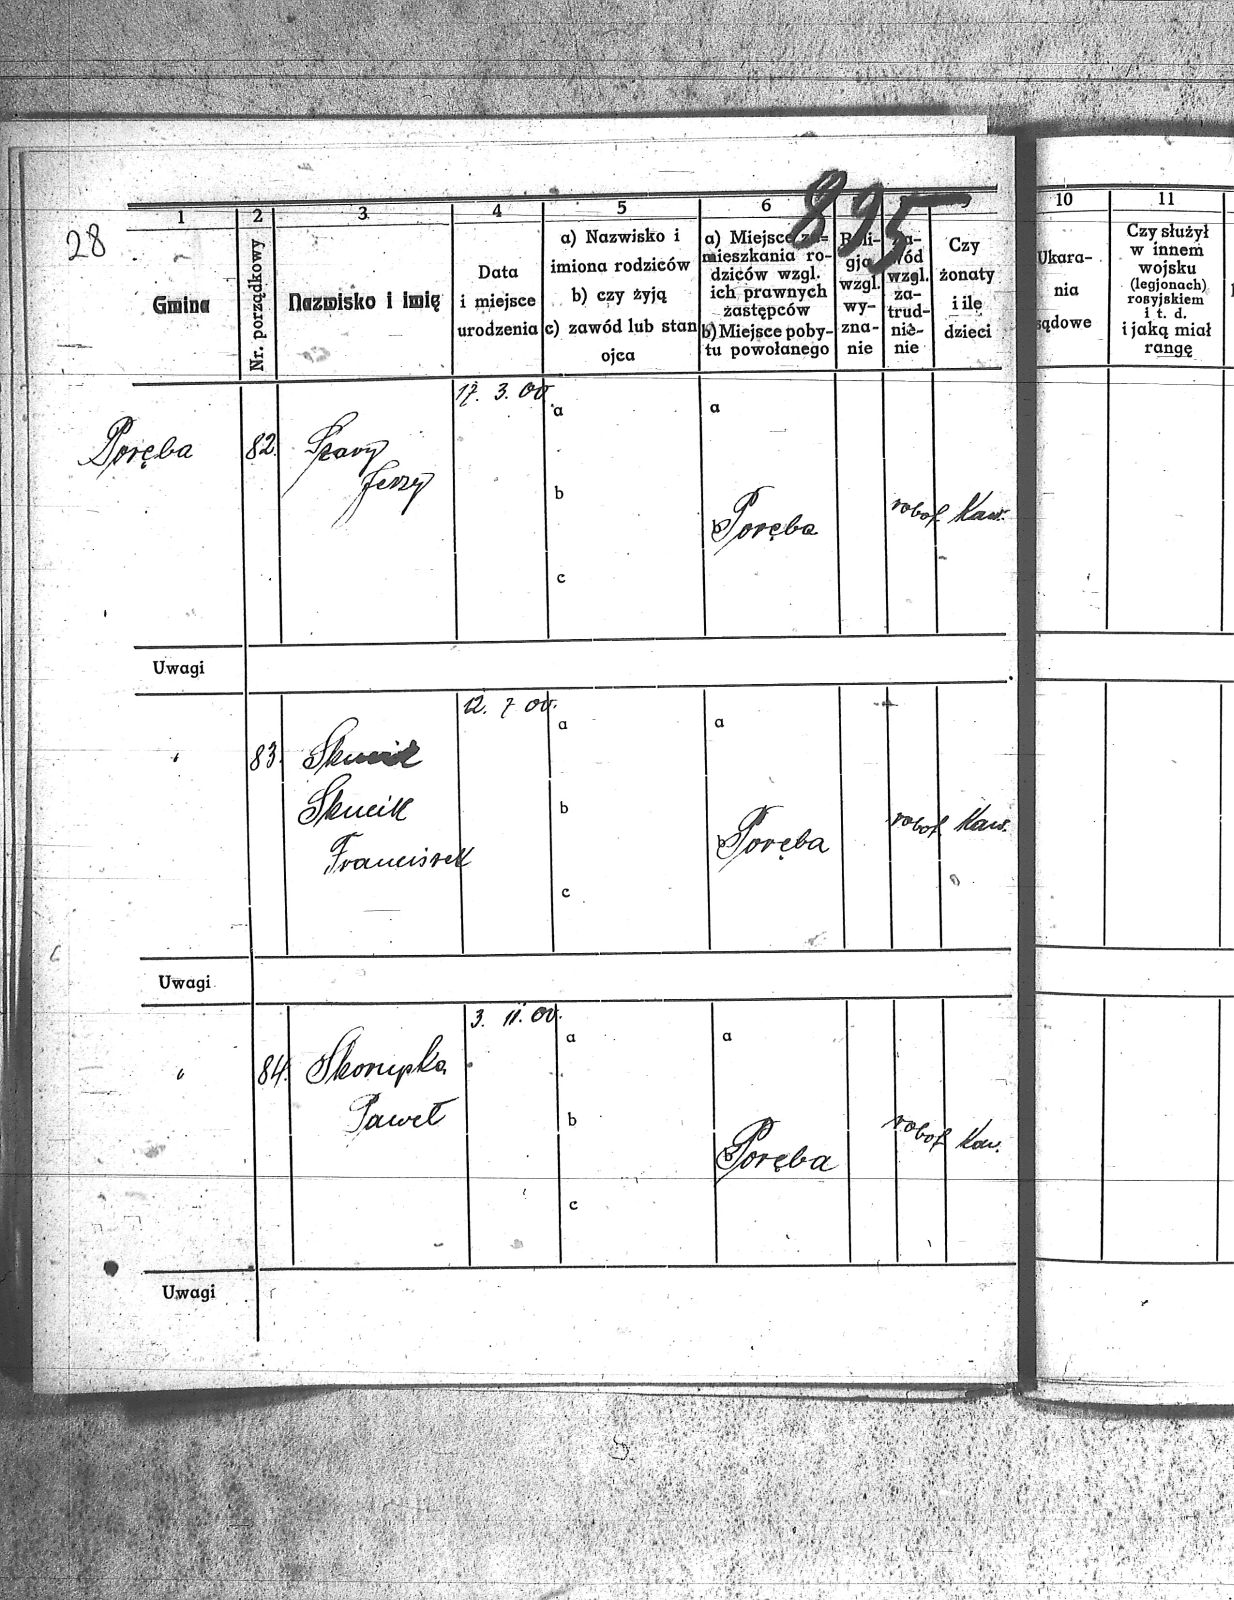 28
895
1 2 3 4 5 6 8
Gmina
Nr. porządkowy
Nazwisko i imię
Data
i miejsce
urodzenia
a) Nazwisko i
imiona rodziców
b) czy żyją
c) zawód lub stan
ojca
a) Miejsce za=
mieszkania ro-
dziców wzgl.
ich prawnych
zastępców
b) Miejsce poby-
tu powołanego
Reli-
gja
wzgl.
wy-
zna-
nie
Za-
wód
wzgl.
za-
trud-
nie-
nie
Czy
żonaty
i ile
dzieci
10 11
Ukara-
nia
sądowe
Czy służył
w innem
wojsku
(legjonach)
rosyjskiem
i t. d.
i jaką miał
rangę
17. 3. 00
a a
Poręba 82. Szary
Jerzy
b b Poręba robot. Kaw.
c
Uwagi
12. 7 00.
a a
" 83. Skucik
Franciszek
b b Poręba robot. Kaw.
c
Uwagi
3. 11. 00.
a a
" 84. Skorupka
Paweł
b b Poręba robot. Kaw.
c
Uwagi